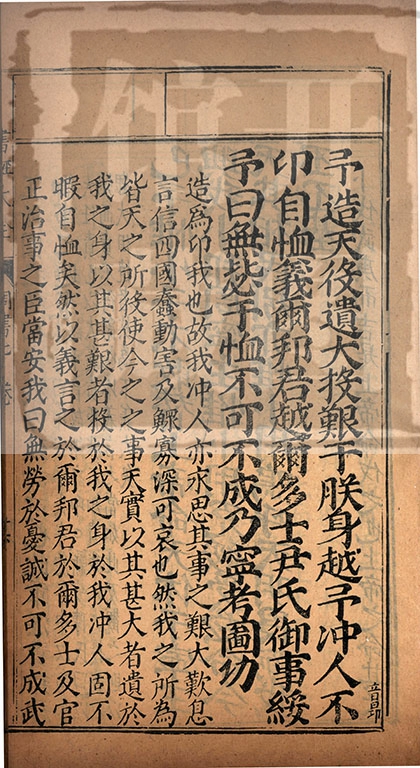 予造天役遺大投艱于朕身越予冲人不
卬自恤義爾邦君越爾多士尹氏御事綏
予曰無毖于恤不可不成乃寧考圖功
音昂卬
造為卬我也故我冲人亦永思其事之艱大歎息
言信四國蠢動害及鰥寡深可哀也然我之所為
皆天之所役使今之之事天實以其甚大者遺於
我之身以其甚艱者投於我之身於我冲人固不
暇自恤矣然以義言之於爾邦君於爾多士及官
正治事之臣當安我曰無勞於憂誠不可不成武